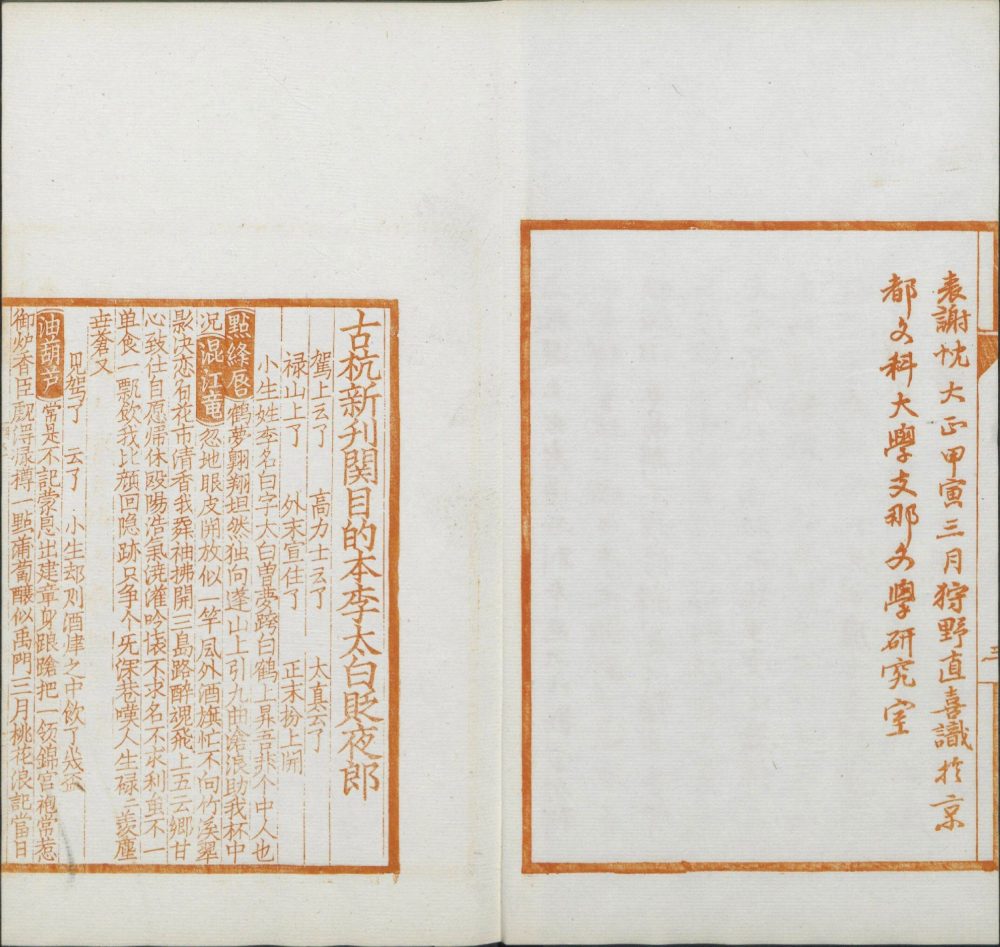 表謝忱大正甲寅三月狩野直喜識於京
都文科大學支那文學研究室
古杭新刊関目的本李太白貶夜郎
駕上云了 高力士云了 太真云了
禄山上了 外末宣住了 正末扮上開
小生姓李名白字太白曽夢跨白鶴上昇吾非个中人也
點絳唇 鶴夢翱翔坦然独向蓬山上引九曲滄浪助我杯中
况 混江竜 忽地眼皮開放似一竿風外酒旗忙不向竹溪翠
影决恋名花市清香我舞袖拂開三島路醉魂飛上五云鄉甘
心致仕自愿帰休殹陽浩氣澆灌吟怀不求名不求利虽不一
单食一瓢飲我比顔回隐跡只争个无深巷嘆人生禄二羡塵
世蒼又
見駕了 云了 小生却則酒肆之中飲了几盃
油葫芦 常是不記蒙恩出建章身踉蹌把一领錦官袍常惹
御炉香臣覷淂湶樽一點蒲萄釀似禹門三月桃花浪記當日